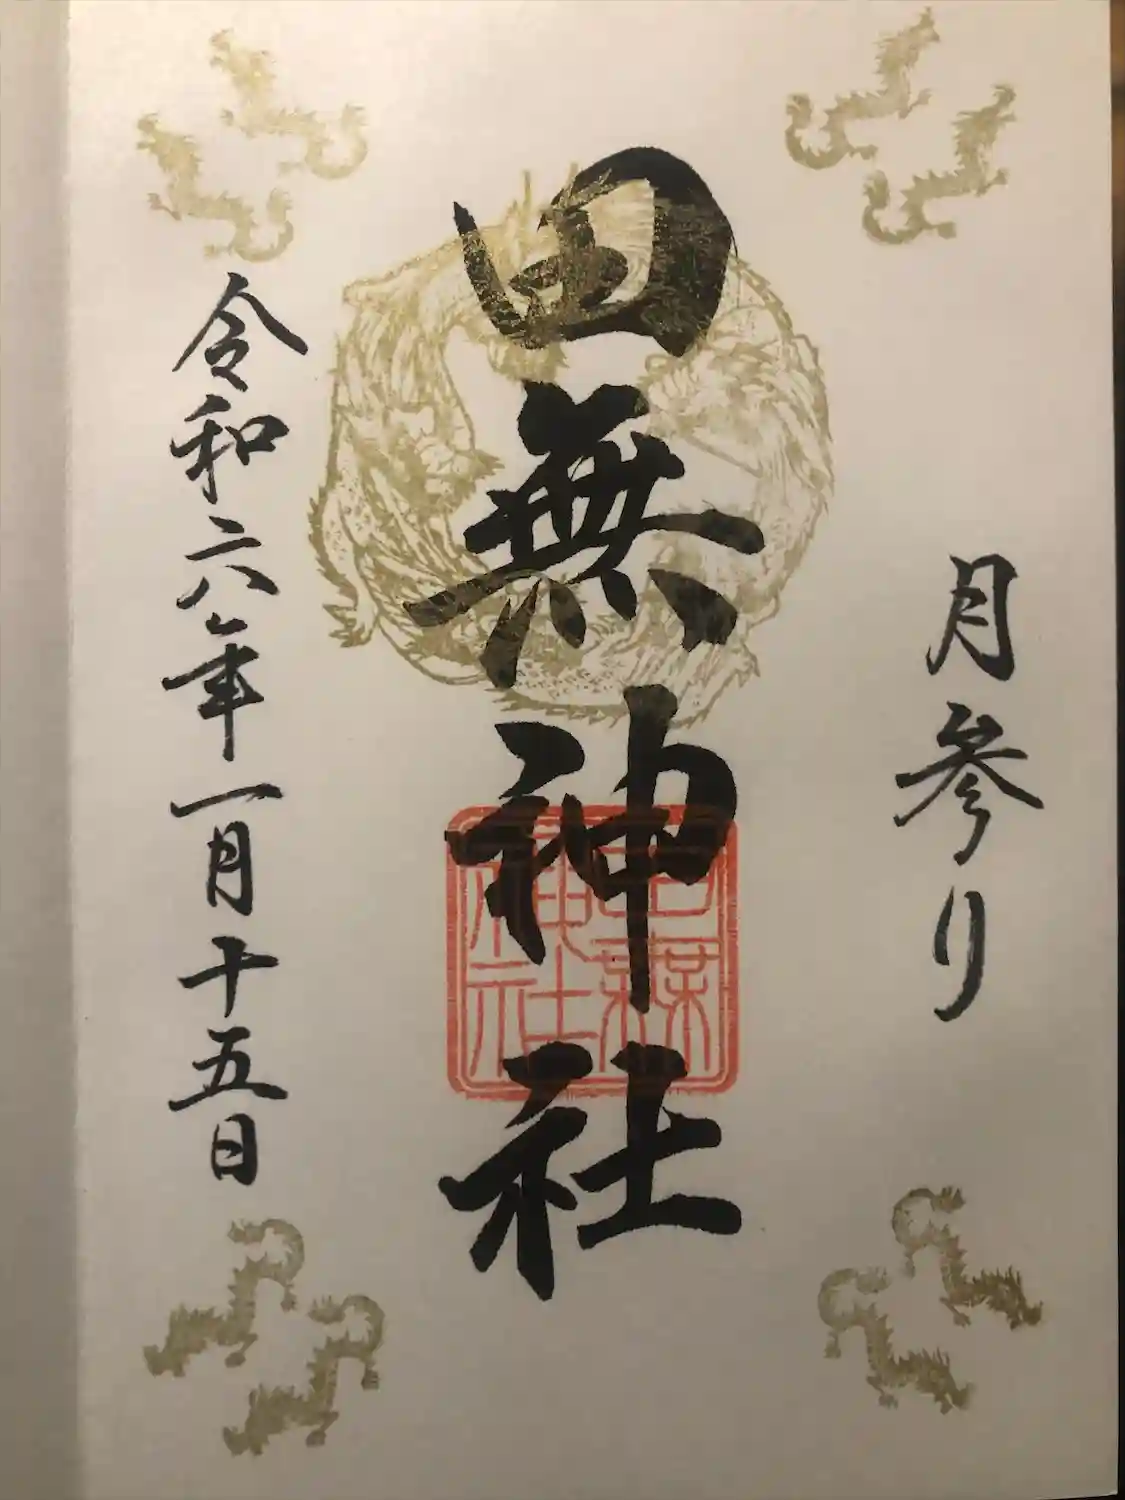 月参り
田無神社
令和六年一月十五日